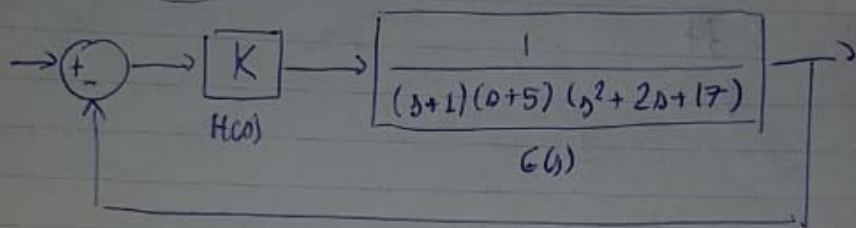 +
-
K
H(s)
1
(s+1)(s+5)(s²+2s+17)
G(s)